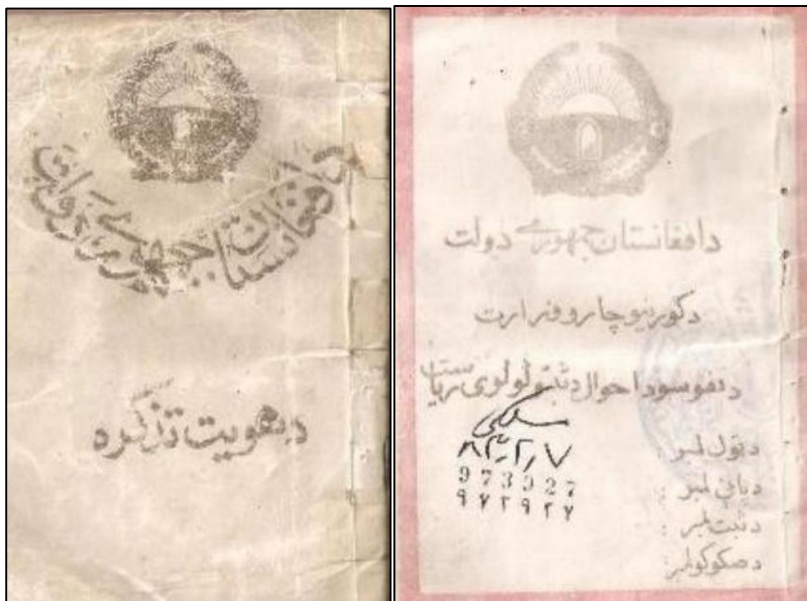 دافغانستان جمهوري دولت
دهویت تذکره
دافغانستان جمهوري دولت
دکورنیو چارو وزارت
دنفوسو داحوال دثبتولولوی ریاست
دټول لمبر :
973927
۹۷۳۹۲۷
دپاڼي لمبر :
دثبت لمبر :
دصکوکو لمبر: